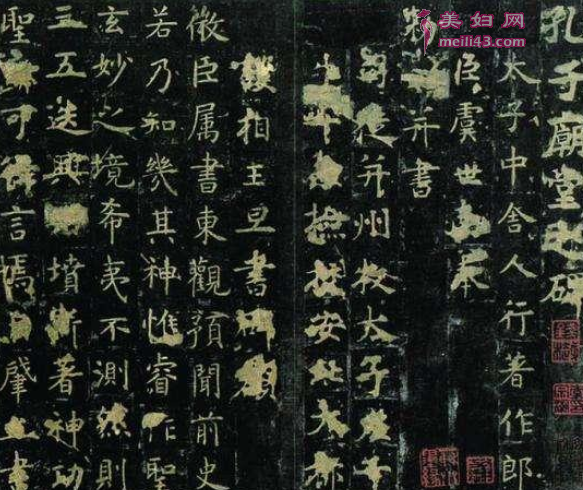 美妇网
meili43.com
孔子廟堂之碑
太子中舍人行著作郎
臣虞世南奉
并書
司徒并州牧太子左千
安北大都
護相王旦書碑額
微臣属書東觀預聞前史
若乃知幾其神惟睿作聖
玄妙之境希夷不測然則
五迭興墳斯著神功
聖可得言焉自肇立書